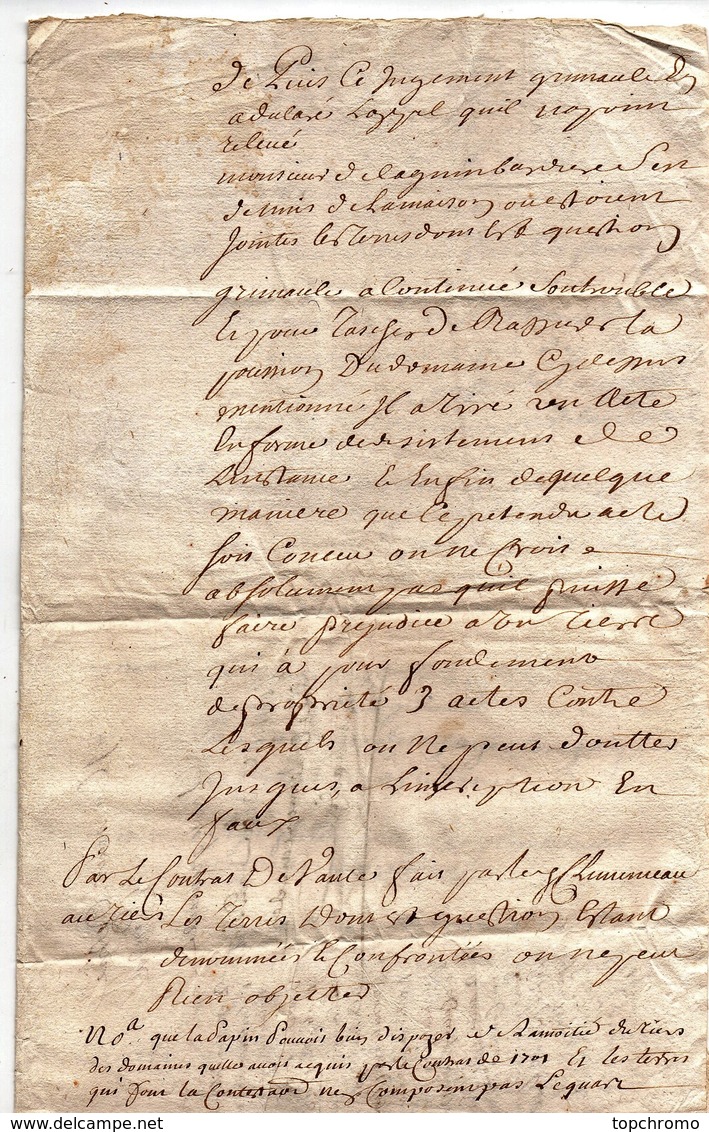 de Puis Ce jugement grimault En
a declaré Lappel quil na point
relevé
monsieur de
de mis de la maison ou estoient
jointes les terres dont Est question
grimault a Continué son trouble
Et pour Tascher de Rassurer la
Du domaine Cy dessus
mentionné Il a tiré un Acte
En forme de desistement de
Linstance Et Enfin de quelque
maniere que le pretendu acte
soit Conceu on ne Crois
absolument pas quil puisse
faire prejudice a un tiers
qui à pour fondement
de proprieté 3 actes Contre
Lesquels on Ne peut doutter
jusques a Linscription En
faux
Par Le Contrat De Vante fait par
au tiers Les Terres Dont est question Estant
denommées Et Confrontées on ne peut
Rien objecter
No.a que la Papin Pouvoit bien disposer de La moitié du tiers
des domaines quelle avoit acquis par le Contrat de 1701 Et les terres
qui font la Contestaon ne Composent pas Le quart
topchromo